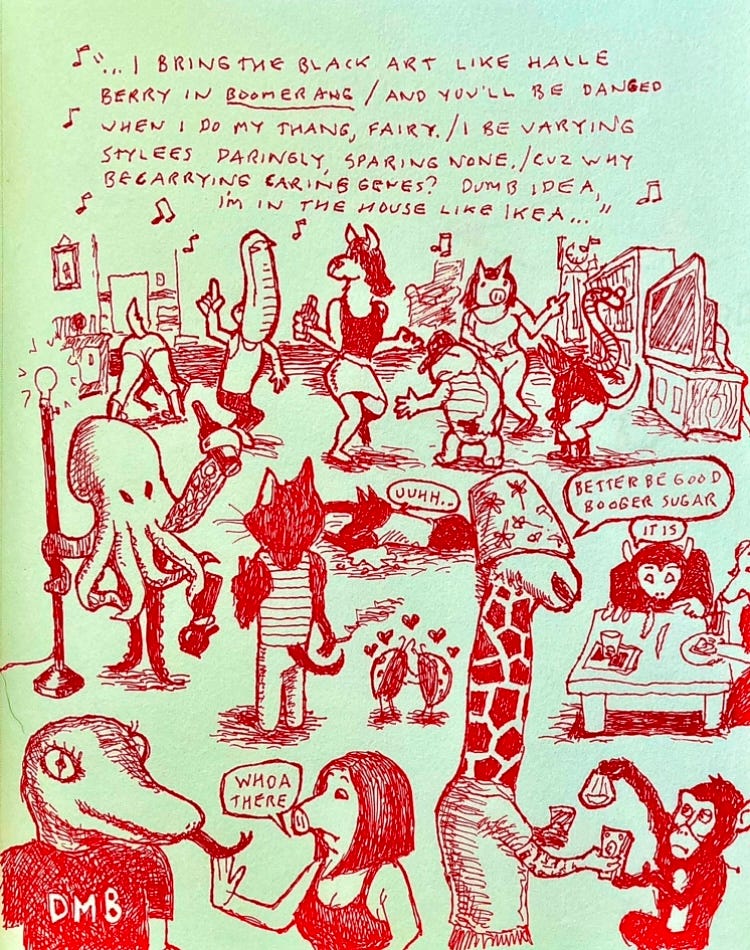 "... I BRING THE BLACK ART LIKE HALLE
BERRY IN BOOMERANG / AND YOU'LL BE DANGED
WHEN I DO MY THANG, FAIRY. / I BE VARYING
STYLEES DARINGLY, SPARING NONE. / CUZ WHY
BE CARRYING CARING GENES? DUMB IDEA,
I'M IN THE HOUSE LIKE IKEA..."
UUHH..
BETTER BE GOOD
BOOGER SUGAR
IT IS
WHOA
THERE
DMB